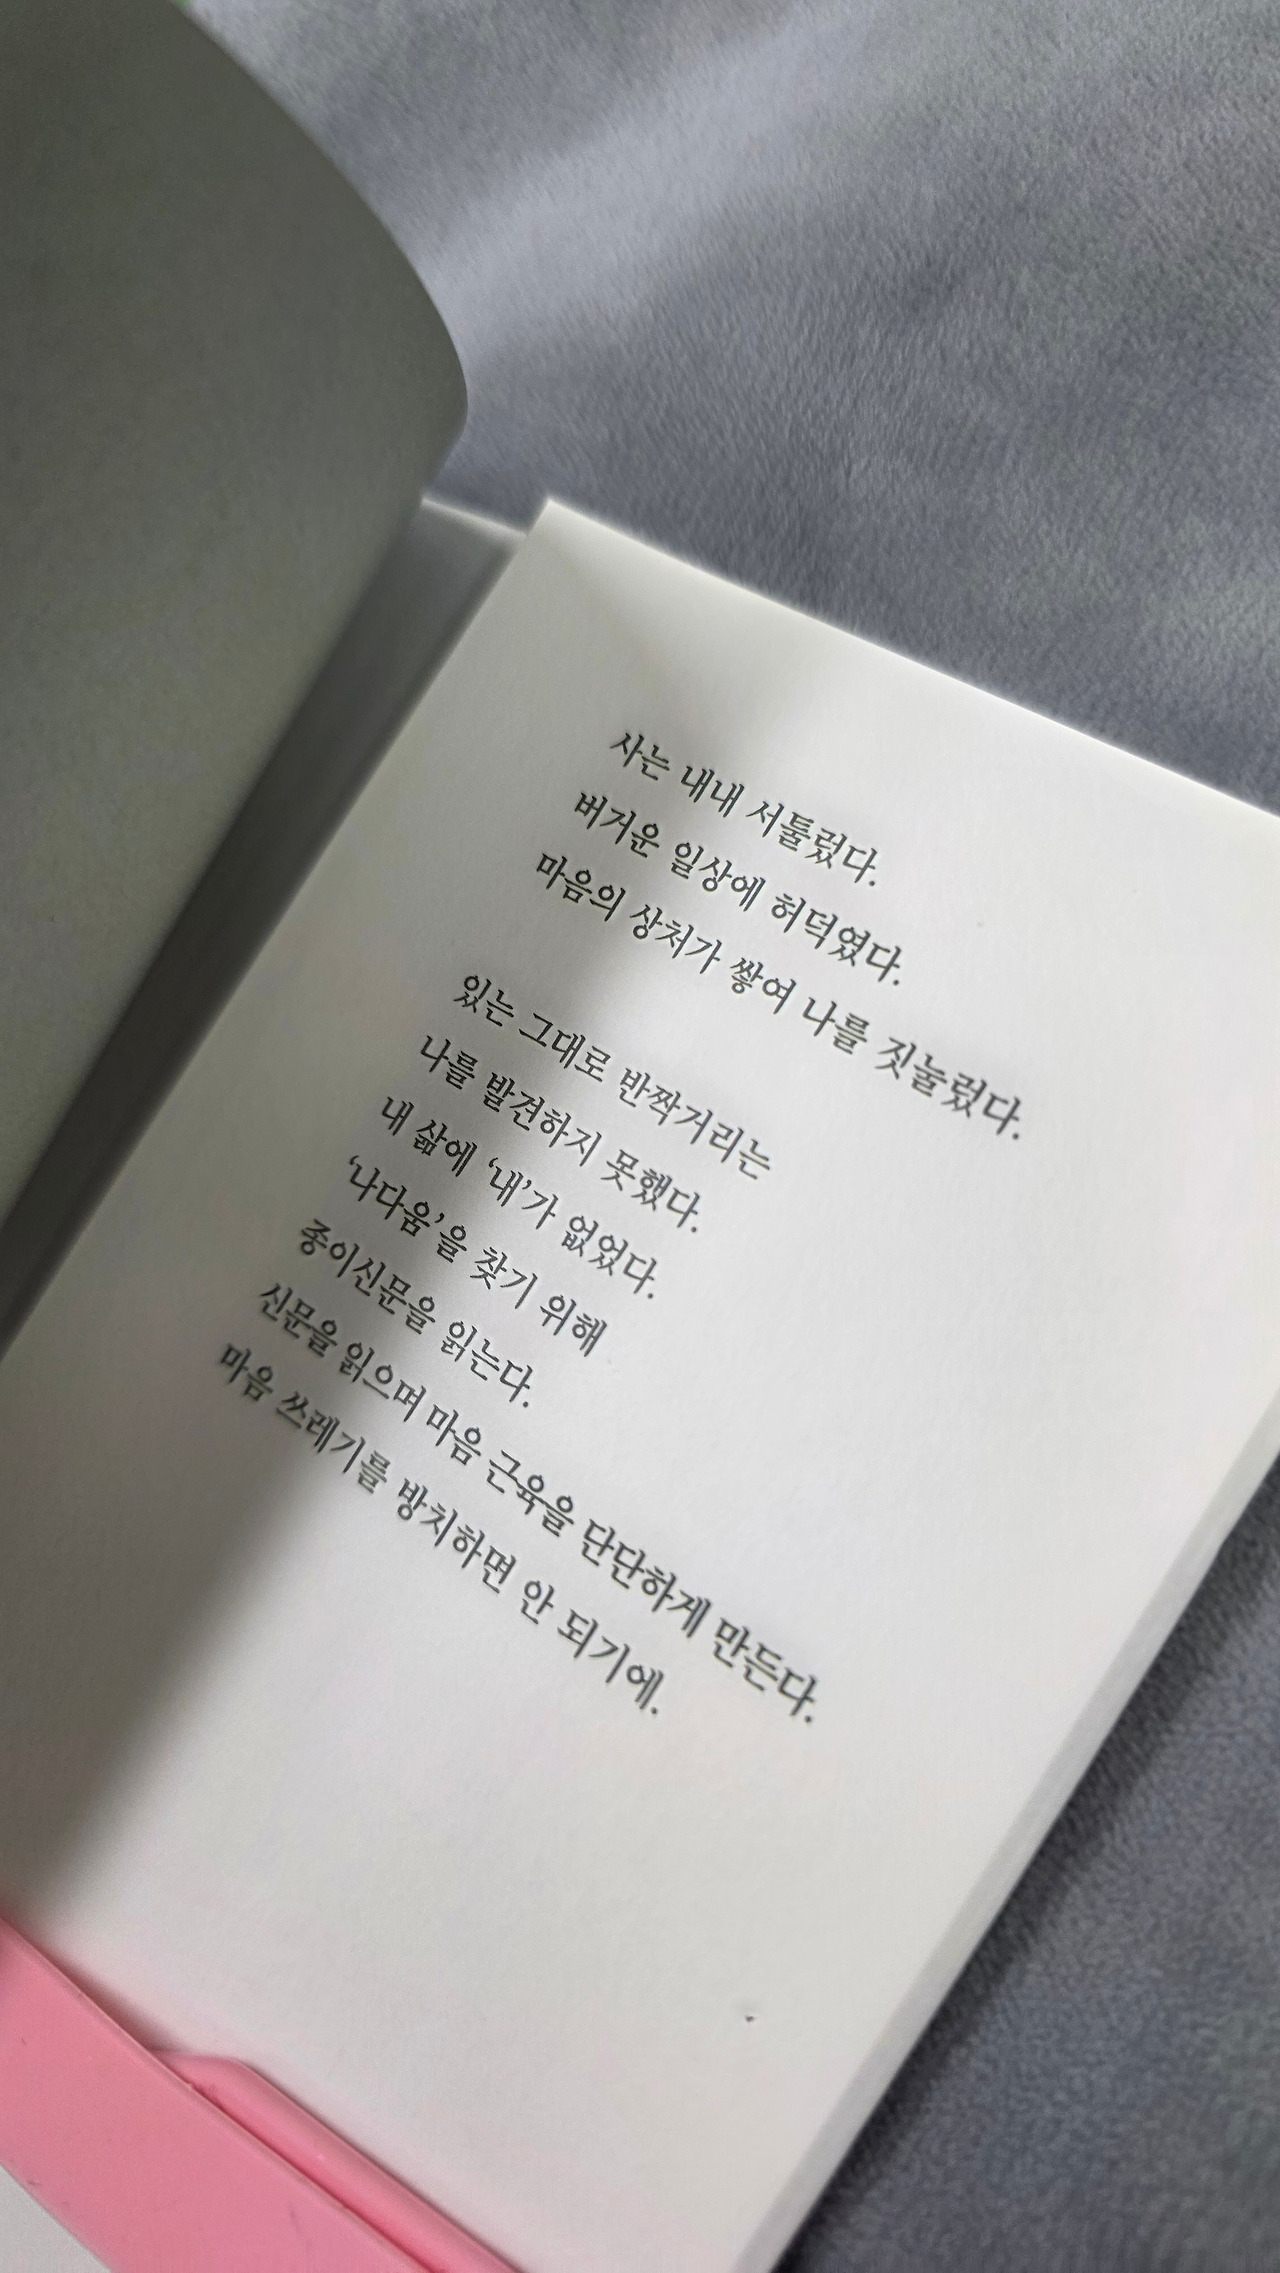 사는 내내 서툴렀다.
버거운 일상에 허덕였다.
마음의 상처가 쌓여 나를 짓눌렀다.
있는 그대로 반짝거리는
나를 발견하지 못했다.
내 삶에 ‘내’가 없었다.
‘나다움’을 찾기 위해
종이신문을 읽는다.
신문을 읽으며 마음 근육을 단단하게 만든다.
마음 쓰레기를 방치하면 안 되기에.